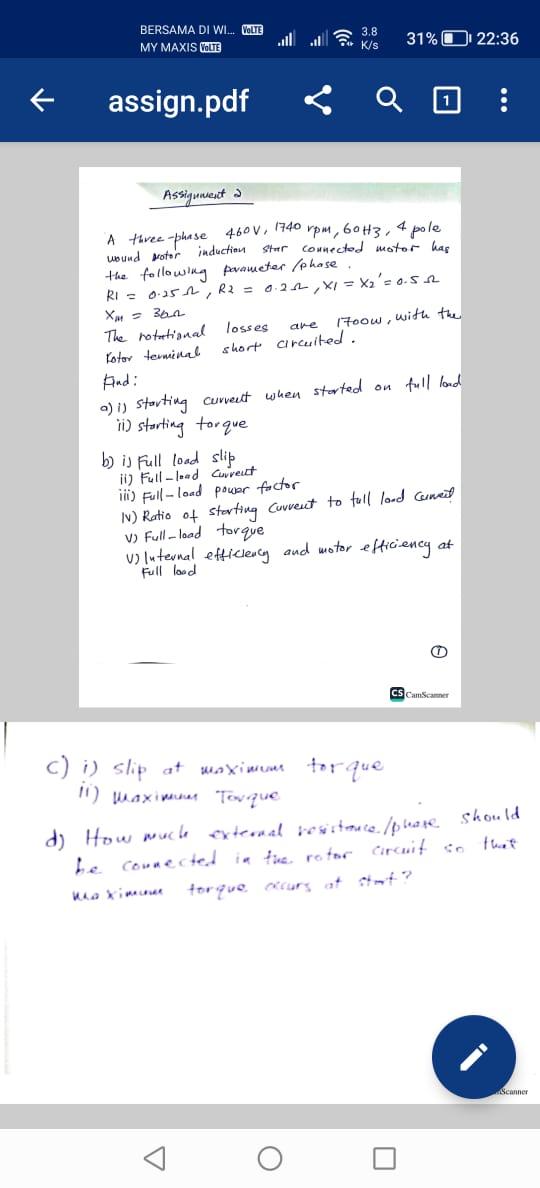 BERSAMA DI WI... VoLTE
MY MAXIS VoLTE
3.8
K/s
31%
22:36
assign.pdf
1
Assignment 2
A three-phase 460V, 1740 rpm, 60Hz, 4 pole
wound rotor induction star connected motor has
the following parameter /phase.
R1 = 0.25 Ω, R2 = 0.2 Ω, X1 = X2' = 0.5 Ω
Xm = 30Ω
The rotational losses are 1700W, with the
rotor terminal short circuited.
Find:
a) i) starting current when started on full load
ii) starting torque
b) i) Full load slip
ii) Full-load Current
iii) Full-load power factor
IV) Ratio of starting Current to full load Current
V) Full-load torque
V) Internal efficiency and motor efficiency at
Full load
1
CS CamScanner
c) i) slip at maximum torque
ii) Maximum Torque
d) How much external resistance/phase should
be connected in the rotor circuit so that
maximum torque occurs at start?
Scanner